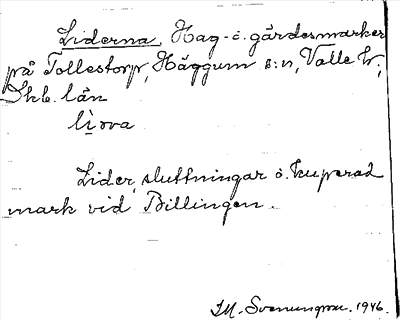 Liderna, Hag- o. gärdesmarker
på Tollestorp, Häggum s:n, Valle hr,
Skb. län
lìdva
Lider, sluttningar o. kuperad
mark vid Billingen.
1946.